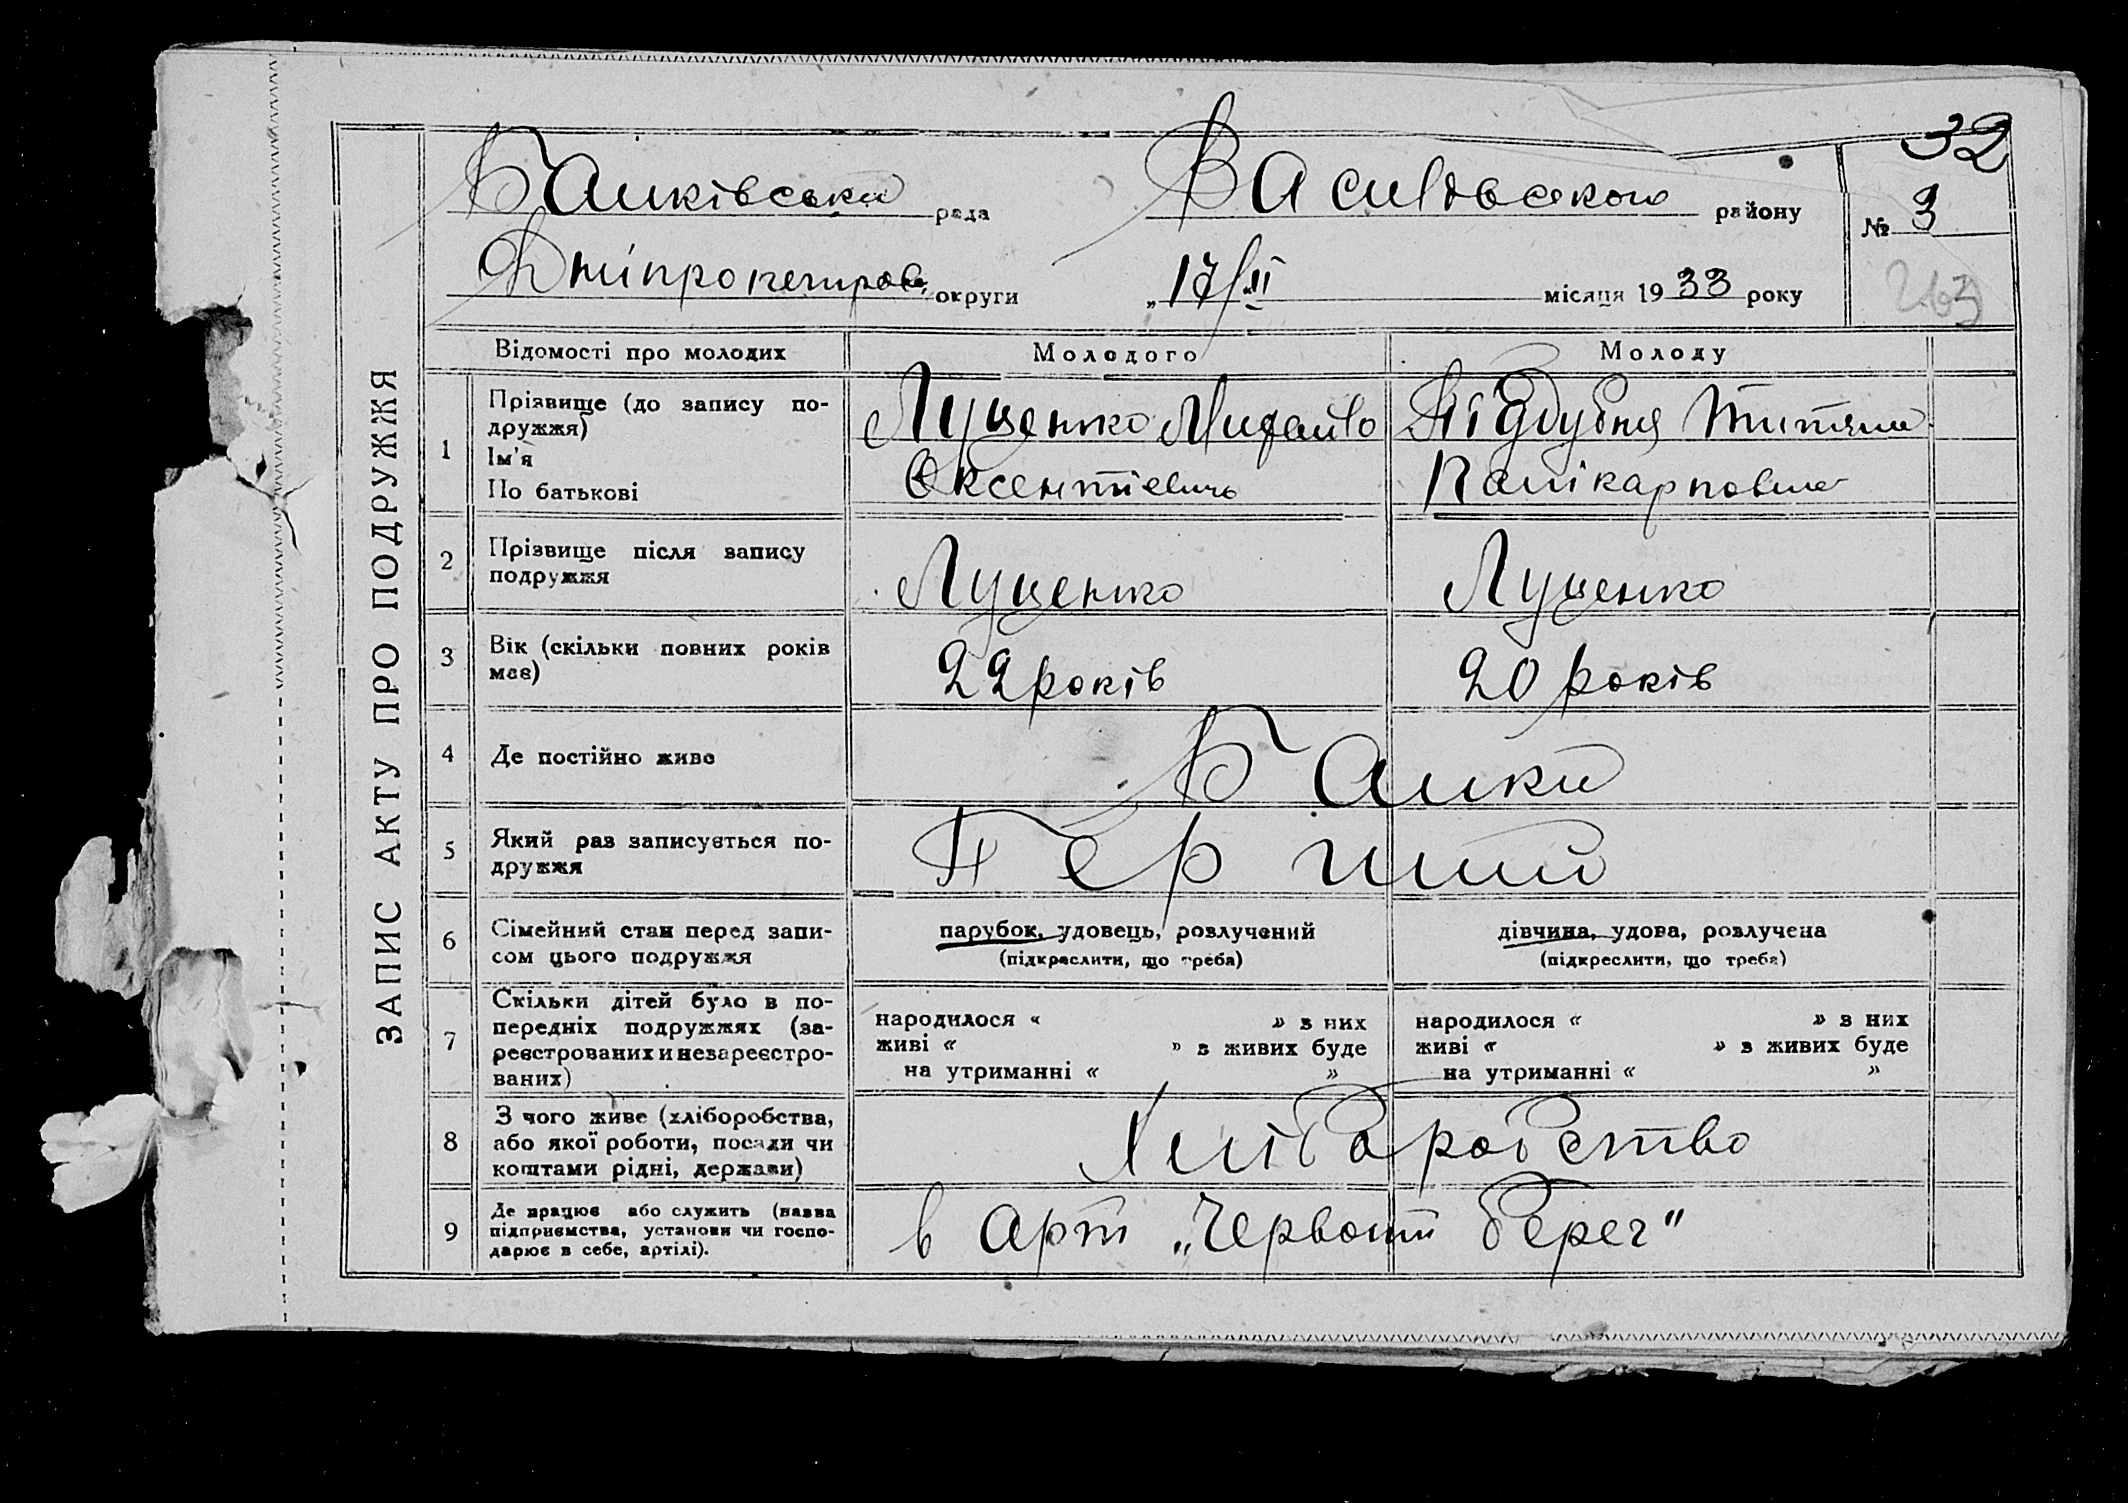 32
Балківська рада Василівського району № 3
Дніпропетров. округи „17/ІІ місяця 1933 року
263
ЗАПИС АКТУ ПРО ПОДРУЖЖЯ
Відомості про молодих Молодого Молоду
1 Прізвище (до запису по-
дружжя)
Ім'я
По батькові
Луценко Михайло
Оксентіевичь
Підубня Титяна
Палікарповна
2 Прізвище після запису
подружжя
Луценко Луценко
3 Вік (скільки повних років
має)
22 років 20 років
4 Де постійно живе
Балки
5 Який раз записується по-
дружжя
Перший
6 Сімейний стан перед запи-
сом цього подружжя
парубок, удовець, розлучений
(підкреслити, що треба)
дівчина, удова, розлучена
(підкреслити, що треба)
7 Скільки дітей було в по-
передніх подружжях (за-
реєстрованих и незареєстро-
ваних)
народилося « » з них
живі « » з живих буде
на утриманні « »
народилося « » з них
живі « » з живих буде
на утриманні « »
8 З чого живе (хліборобства,
або якої роботи, посади чи
коштами рідні, держави)
Хліборобство
9 Де працює або служить (назва
підприємства, установи чи госпо-
дарює в себе, артілі).
в арт „Червоний берег"